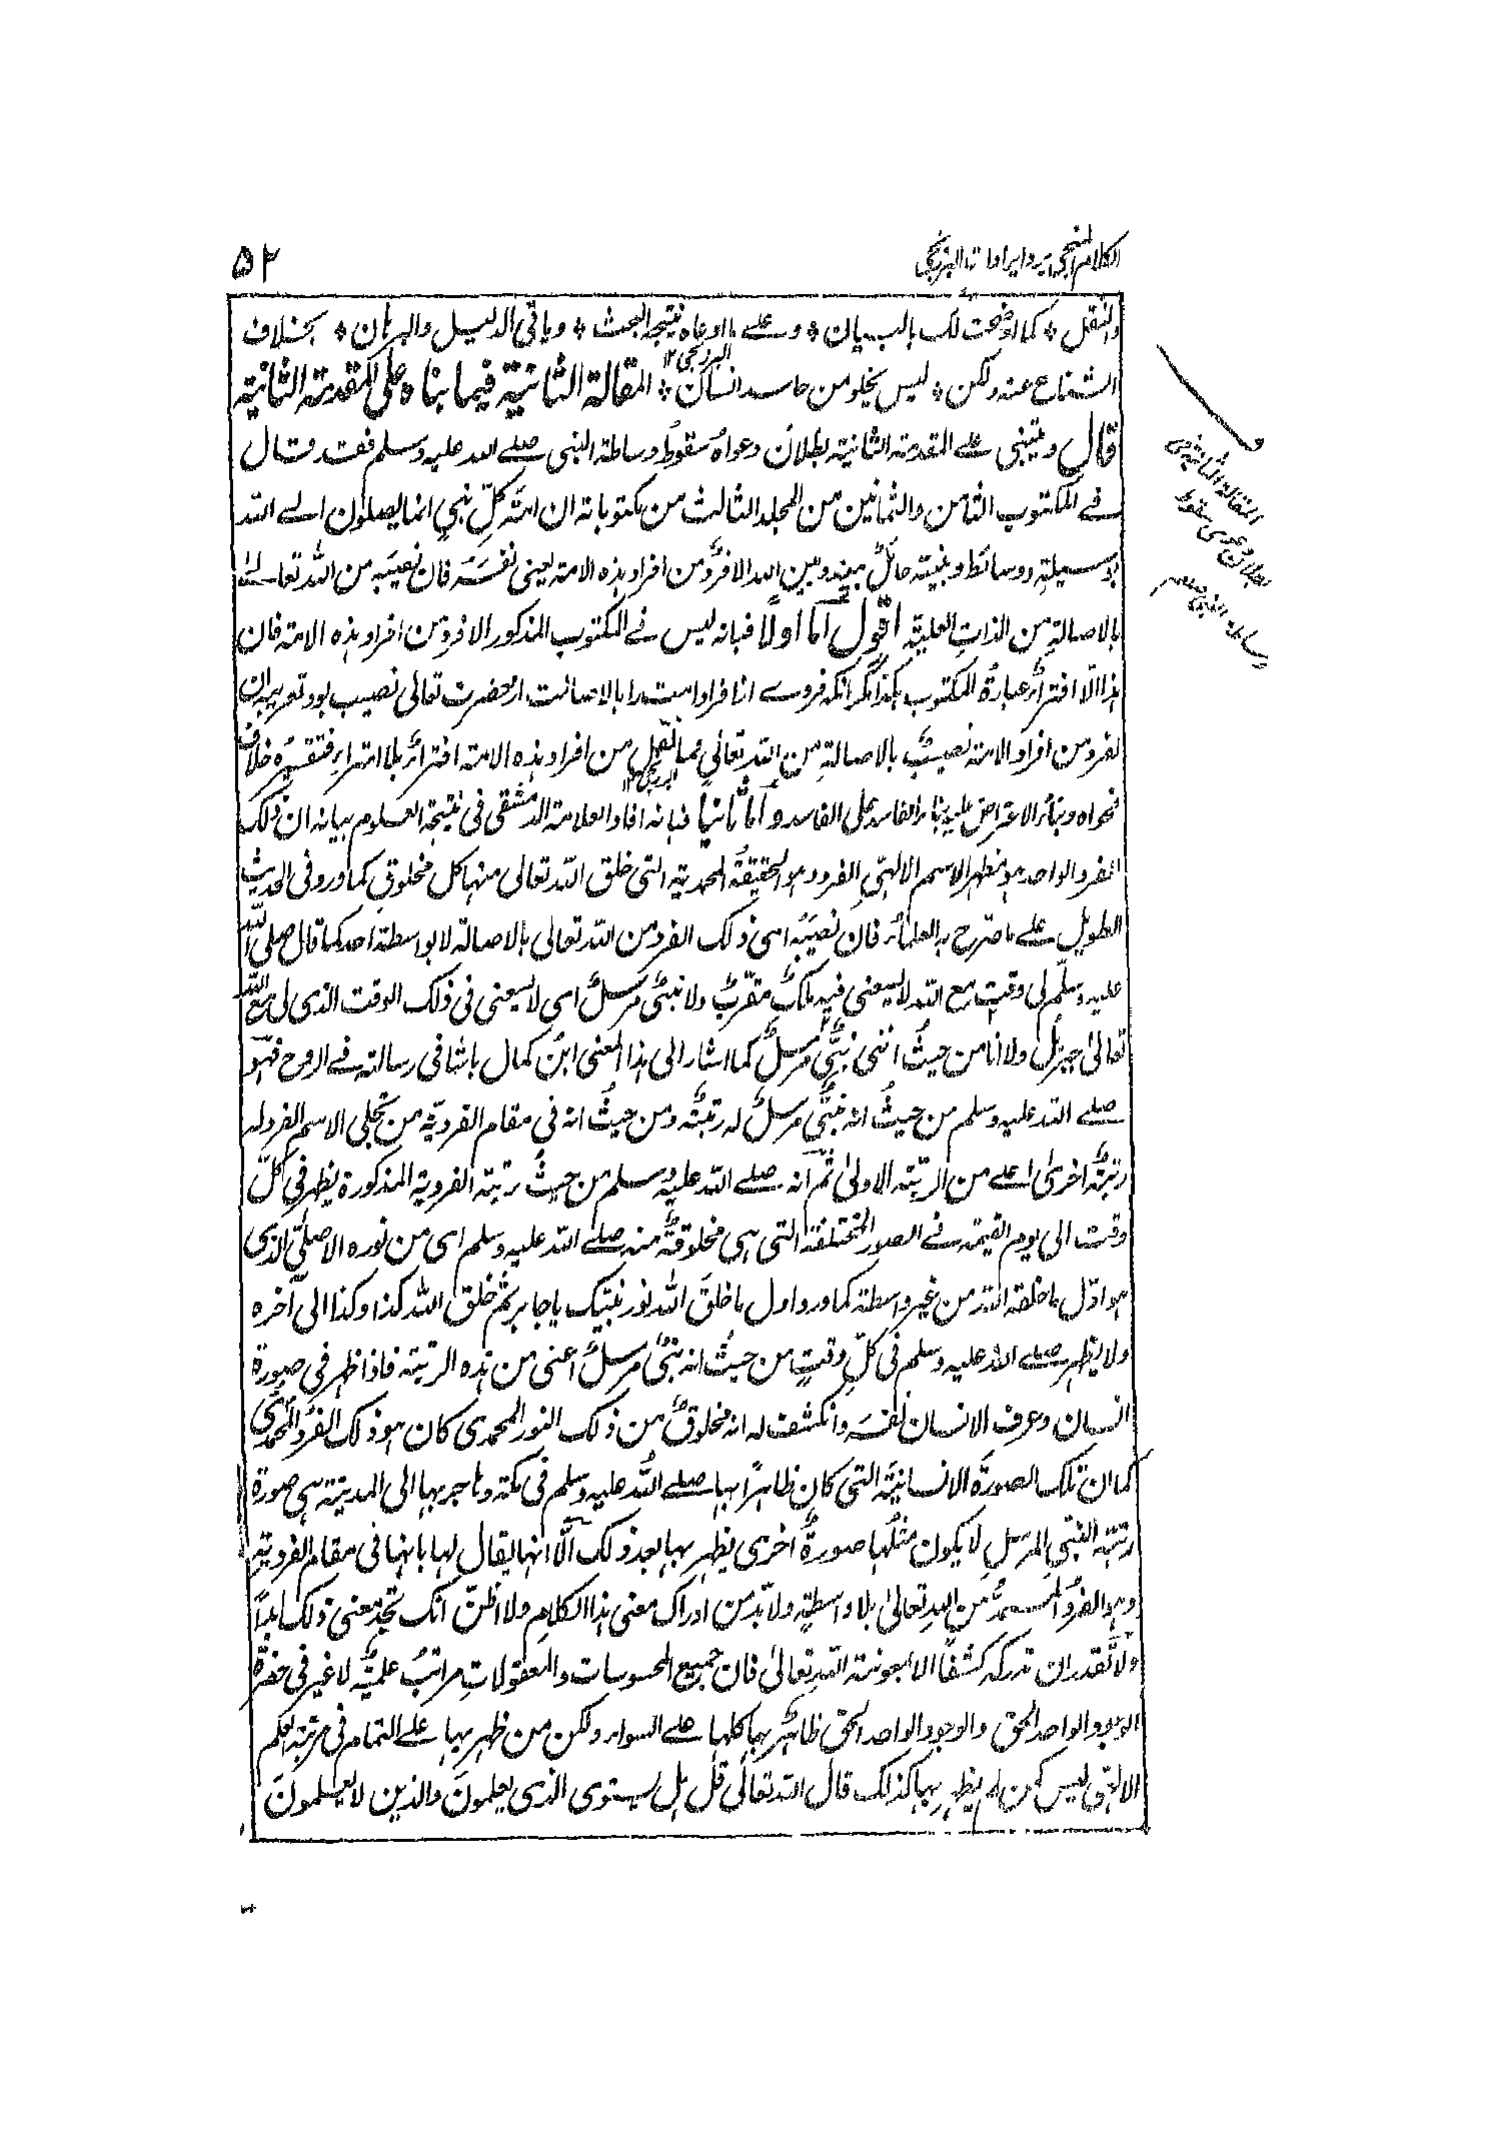 الكلام المنجي برد ايرادات البرزنجي
۵۲
والنقل * كما اوضحت لك بالبيان * وعلى ما ادعاه نتيجة البحث * وباقي الدليل والبرهان * بخلاف
البرزنجي ١٢
الشناع عنه ولكن * ليس يخلو من حاسد انسان * المقالة الثانية فيما بناه على المقدمة الثانية
قال ويبتني على المقدمة الثانية بطلان دعواه سقوط وساطة النبي صلى الله عليه وسلم فقد قال
في المكتوب الثامن والثمانين من المجلد الثالث من مكتوباته ان امة كلّ نبيٍ انما يصلون الى الله
بوسيلةٍ ووسائط ونبيّه حائلٌ بينه وبين الله الا فردٌ من افراد هذه الامة يعني نفسَه فان نصيبَه من الله تعالى
بالاصالةِ من الذاتِ العليّة اقول اما اولًا فبانه ليس في المكتوب المذكور الا فرد من افراد هذه الامة فان
هذا الّا افتراءٌ عبارةُ المكتوب هكذا مگر آنكه فردے از افراد امت را بالاصالت ازحضرت تعالى نصيب بود تعريبه ان
لفردٍ من افراد الامة نصيبٌ بالاصالةِ من الله تعالى فما نَقَل من افراد هذه الامة افتراءٌ بلا امتراءٍ فتفسيرُه خلاف
البرزنجي ١٢
فحواه وبناء الاعتراض عليه بناء الفاسد على الفاسد واَمّا ثانيًا فبانه افاد العلامة الدمشقي في نتيجة العلوم بيانه ان ذلك
الفرد الواحد هو مظهر الاسم الالهيّ الفرد وهو الحقيقةُ المحمدية التي خلق الله تعالى منها كل مخلوقٍ كما ورد في الحديث
الطويل على ما صرّح به العلماء فان نصيبَه اى ذلك الفرد من الله تعالى بالاصالة لا بواسطة احد كما قال صلى الله
عليه وسلّم لى وقتٍ مع الله لا يسعني فيه ملكٌ مقرّبٌ ولا نبيٌّ مرسلٌ اى لا يسعني في ذلك الوقت الذي لى مع الله
تعالىٰ جبرئل ولا انا من حيثُ انني نبيٌّ مرسلٌ كما اشار الى هذا المعنى ابن كمال باشا في رسالته في الروح فهو
صلى الله عليه وسلم من حيثُ انه نبيٌّ مرسلٌ له رتبةٌ ومن حيثُ انه في مقام الفرديّة من تجلي الاسم الفرد له
رتبةٌ اخرىٰ اعلى من الرتبة الاولىٰ ثمّ انه صلى الله عليه وسلم من حيثُ رتبة الفردية المذكورة يظهر في كلّ
وقت الى يوم القيٰمة في الصور المختلفة التي هي مخلوقةٌ منه صلى الله عليه وسلم اى من نوره الاصليّ الذي
هو اوّل ما خلقه الله من غير واسطة كما ورد اول ما خلقَ الله نور نبيّك يا جابر ثم خلق الله كذا وكذا الى آخره
ولا يظهر صلى الله عليه وسلم في كلّ وقتٍ من حيثُ انه نبيٌّ مرسلٌ اعني من هذه الرتبة فاذا ظهر في صورة
انسان وعرف الانسان نفسَه وانكشفت له انه مخلوقٌ من ذلك النور المحمدي كان هو ذلك الفردُ المحمديّ
كما ان تلك الصورةَ الانسانيّة التي كان ظاهرًا بها صلى الله عليه وسلم في مكة وهاجر بها الى المدينة هي صورة
رتبة النبيّ المرسلِ لا يكون مثلُها صورةٌ اخرى يظهر بها بعد ذلك الّا انها يقال لها بانها في مقام الفردية
وهو الفردُ المستمدُّ من الله تعالىٰ بلا واسطةٍ ولا بدّ من ادراك معنى هذا الكلام ولا اظنّ انك تجد معنى ذلك ابدًا
ولا تقدر ان تدركه كشفًا الا بمعونة الله تعالىٰ فان جميع المحسوسات والمعقولاتِ مراتبُ علميّةٌ لا غير في حضرة
الوجود الواحد الحق والوجود الواحد الحق ظاهرٌ بها كلها على السواء ولكن من ظهر بها على التمام في مرتبة العلم
الالهيّ ليس كمن لم يظهر بها كذلك قال الله تعالى قل هل يستوى الذي يعلمونَ والذين لا يعلمونَ
المقالة الثانية في
بطلان دعوى سقوط
وساطة النبي صلعم